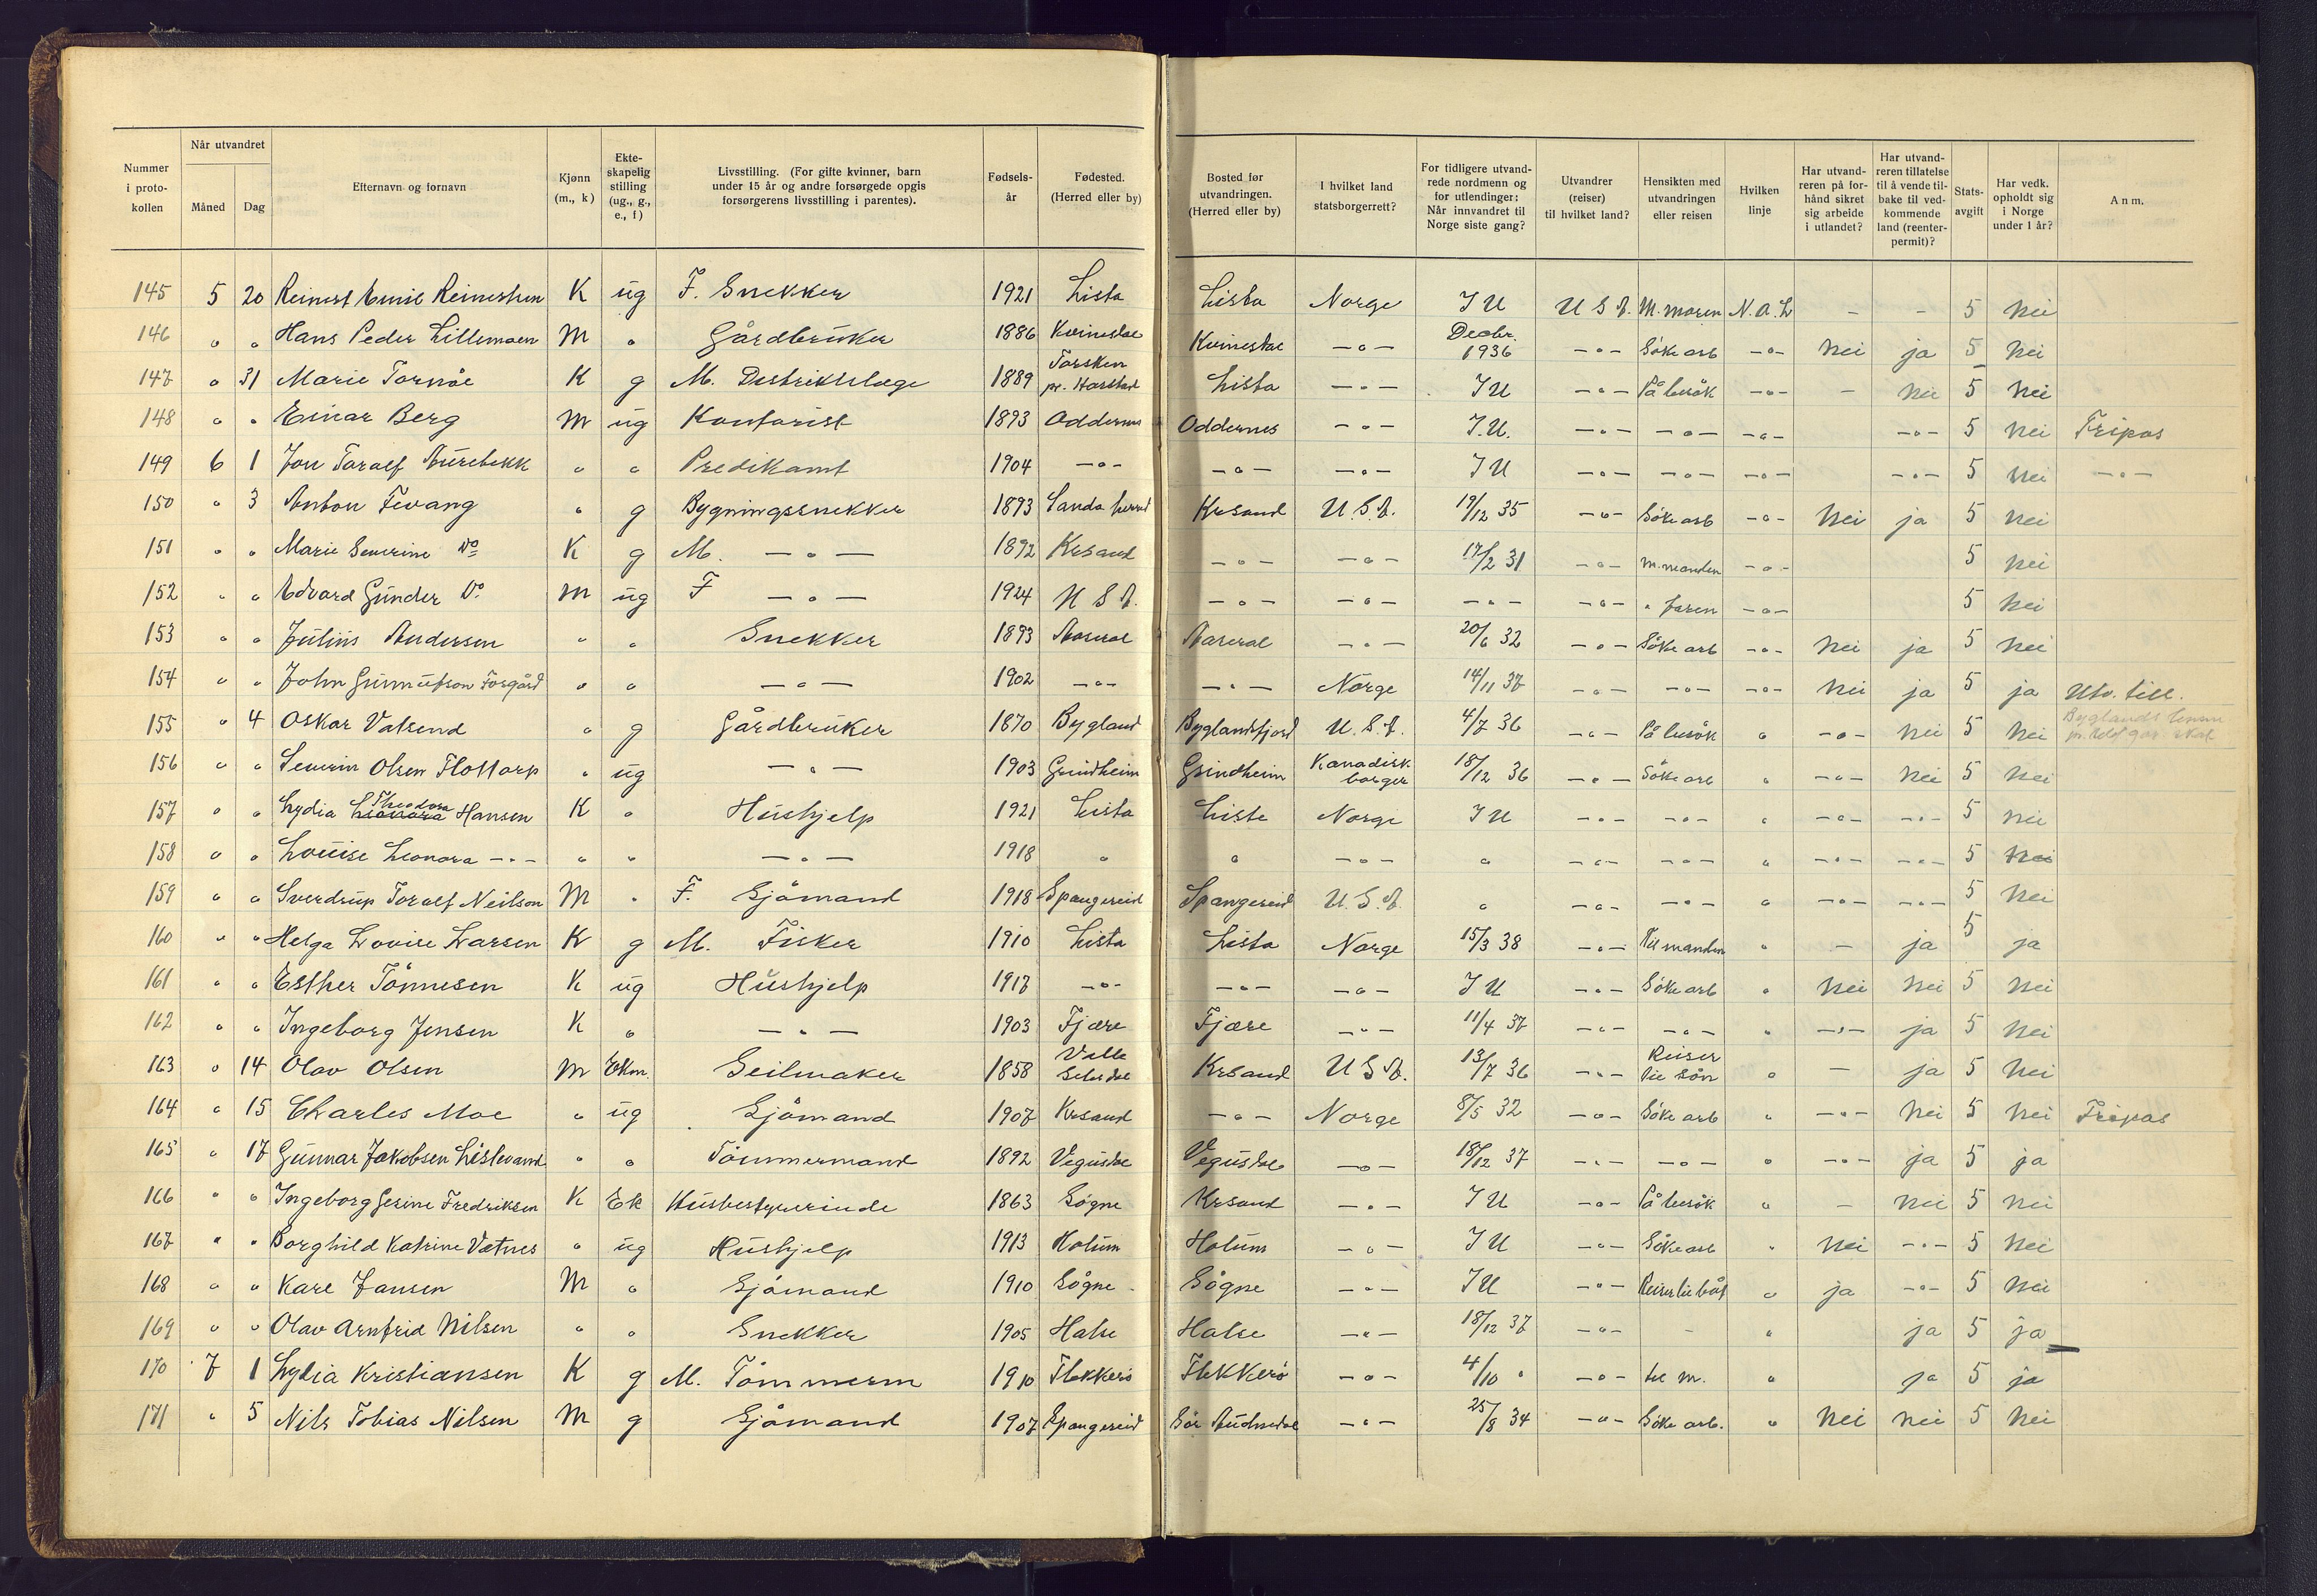 Nummer i protokollen | Når utvandret Måned | Dag | Efternavn og fornavn | Kjønn (m., k) | Ekteskapelig stilling (ug., g., e., f) | Livsstilling. (For gifte kvinner, barn under 15 år og andre forsørgede opgis forsørgerens livsstilling i parentes). | Fødselsår | Fødested. (Herred eller by) | Bosted før utvandringen. (Herred eller by) | I hvilket land statsborgerrett? | For tidligere utvandrede nordmenn og for utlendinger: Når innvandret til Norge siste gang? | Utvandrer (reiser) til hvilket land? | Hensikten med utvandringen eller reisen | Hvilken linje | Har utvandreren på forhånd sikret sig arbeide i utlandet? | Har utvandreren tillatelse til å vende tilbake til vedkommende land (reenterpermit)? | Statsavgift | Har vedk. opholdt sig i Norge under 1 år? | Anm.
145 5 20 Reinert Emil Reinertsen K ug F. Snekker 1921 Lista Lista Norge I U U S A. M. moren N. A. L - - 5 Nei
146 " " Hans Peder Lillemoen M " Gårdbruker 1886 Kvinesdal Kvinesdal -"- Decbr. 1936 -"- Söke arb -"- Nei ja 5 Nei
147 " 31 Marie Tornöe K g M. Distriktslæge 1889 Torsken pr. Harstad Lista -"- I U -"- På besök -"- - Nei 5 Nei
148 " " Einar Berg M ug Kontorist 1893 Oddernes Oddernes -"- I.U. -"- -"- -"- -"- 5 Nei Fripas
149 6 1 Jon Toralf Aurebekk " " Predikant 1904 -"- -"- -"- I U -"- -"- -"- -"- 5 Nei -"-
150 " 3 Anton Fevang " g Bygningssnekker 1893 Sanda herred Krsand U.S.A. 19/12 35 -"- Söke arb -"- Nei ja 5 Nei
151 " " Marie Severine Do K g M. -"- 1892 Krsand -"- -"- 17/2 31 -"- M. manden -"- 5 Nei
152 " " Edvard Gunder Do M ug F -"- 1924 U S A. -"- -"- -"- -"- " faren -"- 5 Nei
153 " " Julius Andersen " " Snekker 1893 Aaseral Aaseral -"- 20/6 32 -"- Söke arb -"- Nei ja 5 Nei
154 " " John Gunnufson Forgård " " -"- 1902 -"- -"- Norge 14/11 37 -"- -"- -"- Nei ja 5 ja Utv. till.
155 " 4 Oskar Vatsend " g Gårdbruker 1870 Bygland Byglandsfjord U.S.A. 4/7 36 -"- På besök " -"- Nei 5 Nei Byglands
156 " " Severin Olsen Flottorp " ug -"- 1903 Grindheim Grindheim Kanadisk borger 18/12 36 -"- Söke arb " -"- Nei 5 Nei
157 " " Lydia Theodora Hansen K " Hushjelp 1921 Lista Liste Norge I U -"- -"- " -"- -"- 5 Nei
158 " " Louise Leonora -"- " " -"- 1918 " " -"- " -"- -"- " -"- -"- 5 Nei
159 " " Sverdrup Toralf Neilson M " F. Sjömand 1918 Spangereid Spangereid U.S.A. " -"- -"- " -"- -"- 5 Nei
160 " " Helga Lovise Larsen K g M. Fisker 1910 Lista Lista Norge 15/3 38 -"- Til manden " - ja 5 ja
161 " " Esther Tönnesen K ug Hushjelp 1917 -"- -"- -"- I U -"- Söke arb " Nei Nei 5 Nei
162 " " Ingeborg Jensen K " -"- 1903 Fjære Fjære -"- 11/4 37 -"- -"- " -"- ja 5 Nei
163 " 14 Olav Olsen M Ekm. Seilmaker 1858 Valle Setesdal Krsand U S A. 13/7 36 -"- Reiser til sön " - ja 5 Nei
164 " 15 Charles Moe " ug Sjömand 1907 Krsand -"- Norge 8/5 32 -"- Söke arb " -"- Nei 5 Nei Fripas
165 " 17 Gunnar Jakobsen Lislevand " " Tömmermand 1892 Vegusdal Vegusdal -"- 18/12 37 -"- -"- " -"- ja 5 ja
166 " " Ingeborg Gesine Fredriksen K Ek Husbestyrerinde 1863 Sögne Krsand -"- I U -"- På besök " - Nei 5 Nei
167 " " Borghild Katrine Vatnes " ug Hushjelp 1913 Holum Holum -"- I U -"- Söke arb " Nei -"- 5 Nei
168 " " Kare Jansen M " Sjömand 1910 Sögne Sögne -"- I U -"- Reiser til båt " ja -"- 5 Nei
169 " " Olav Arnfrid Nilsen " " Snekker 1905 Halse Halse -"- 18/12 37 -"- - " ja 5 ja
170 7 1 Lydia Kristiansen K g M. Tömmerm 1910 Flekkerö Flekkerö -"- 4/10 " -"- til m. " ja 5 ja
171 " 5 Nils Tobias Nilsen M g Sjömand 1907 Spangereid Sör Audnedal -"- 25/8 34 -"- Söke arb. " Nei nei 5 Nei